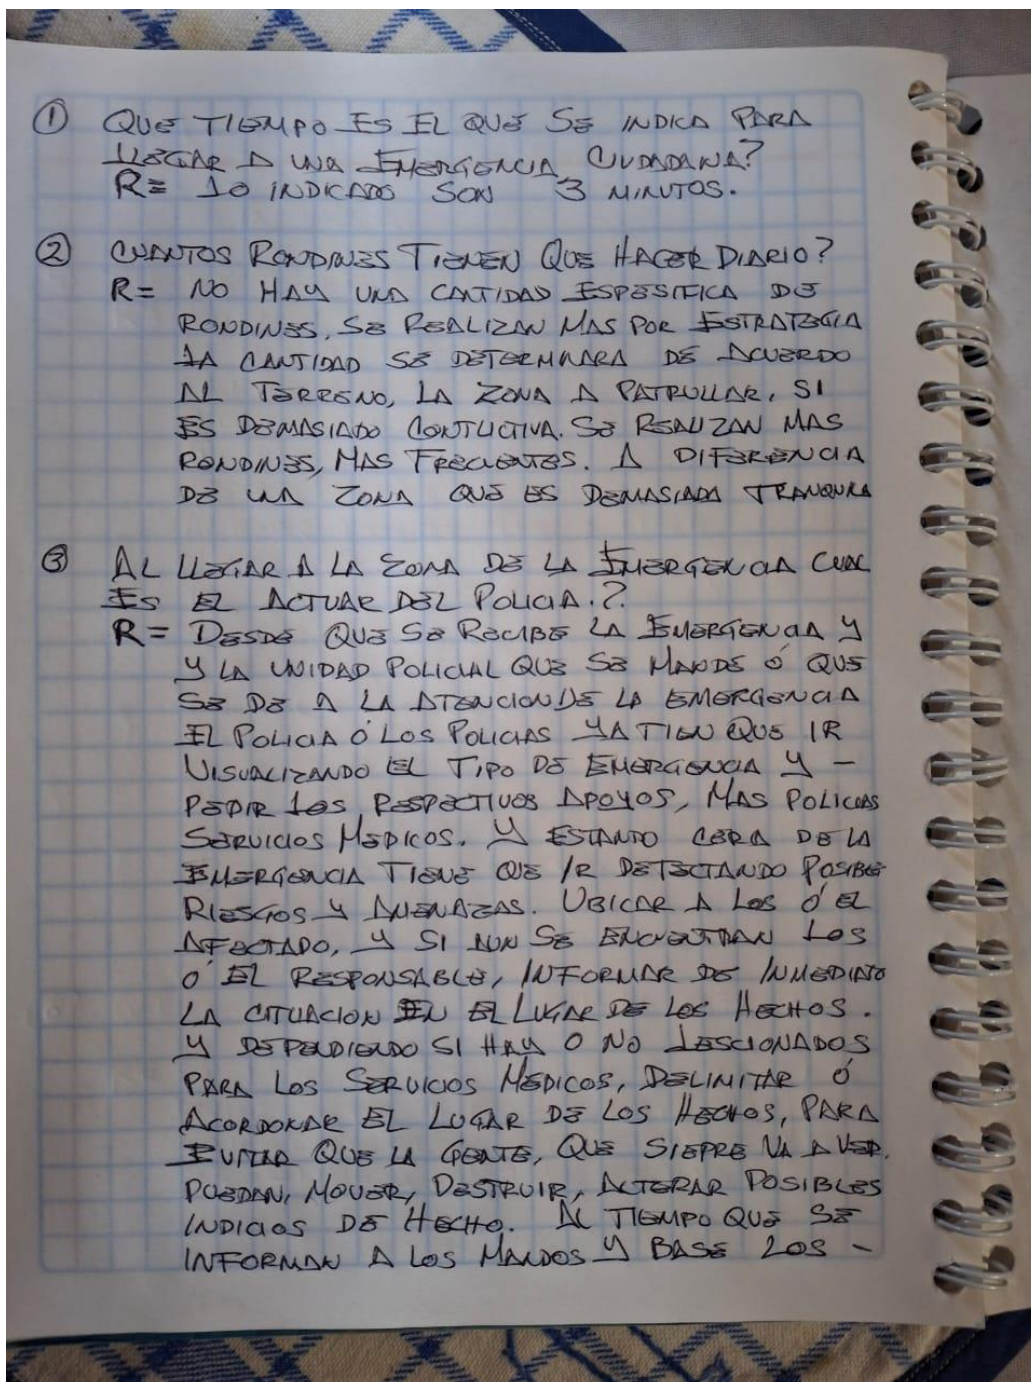 ① QUE TIEMPO ES EL QUE SE INDICA PARA
LLEGAR A UNA EMERGENCIA CIUDADANA?
R= LO INDICADO SON 3 MINUTOS.
② CUANTOS RONDINES TIENEN QUE HACER DIARIO?
R= NO HAY UNA CANTIDAD ESPESIFICA DE
RONDINES, SE REALIZAN MAS POR ESTRATEGIA
LA CANTIDAD SE DETERMINARA DE ACUERDO
AL TERRENO, LA ZONA A PATRULLAR, SI
ES DEMASIADO CONFLICTIVA. SE REALIZAN MAS
RONDINES, MAS FRECUENTES. A DIFERENCIA
DE UNA ZONA QUE ES DEMASIADA TRANQUILA
③ AL LLEGAR A LA ZONA DE LA EMERGENCIA CUAL
ES EL ACTUAR DEL POLICIA.?
R= DESDE QUE SE RECIBE LA EMERGENCIA Y
Y LA UNIDAD POLICIAL QUE SE MANDE Ó QUE
SE DE A LA ATENCION DE LA EMERGENCIA
EL POLICIA Ó LOS POLICIAS YA TIEN QUE IR
VISUALIZANDO EL TIPO DE EMERGENCIA Y -
PEDIR LOS RESPECTIVOS APOYOS, MAS POLICIAS
SERVICIOS MEDICOS. Y ESTANDO CERA DE LA
EMERGENCIA TIENE QUE IR DETECTANDO POSIBE
RIESGOS Y AMENAZAS. UBICAR A LOS Ó EL
AFECTADO, Y SI AUN SE ENCUENTRAN LOS
Ó EL RESPONSABLE, INFORMAR DE INMEDIATO
LA CITUACION EN EL LUGAR DE LOS HECHOS.
Y DEPENDIENDO SI HAY O NO LESCIONADOS
PARA LOS SERVICIOS MEDICOS, DELIMITAR Ó
ACORDONAR EL LUGAR DE LOS HECHOS, PARA
EVITAR QUE LA GENTE, QUE SIEPRE VA A VER.
PUEDAN, MOVER, DESTRUIR, ALTERAR POSIBLES
INDICIOS DE HECHO. AL TIEMPO QUE SE
INFORMAN A LOS MANDOS Y BASE LOS -